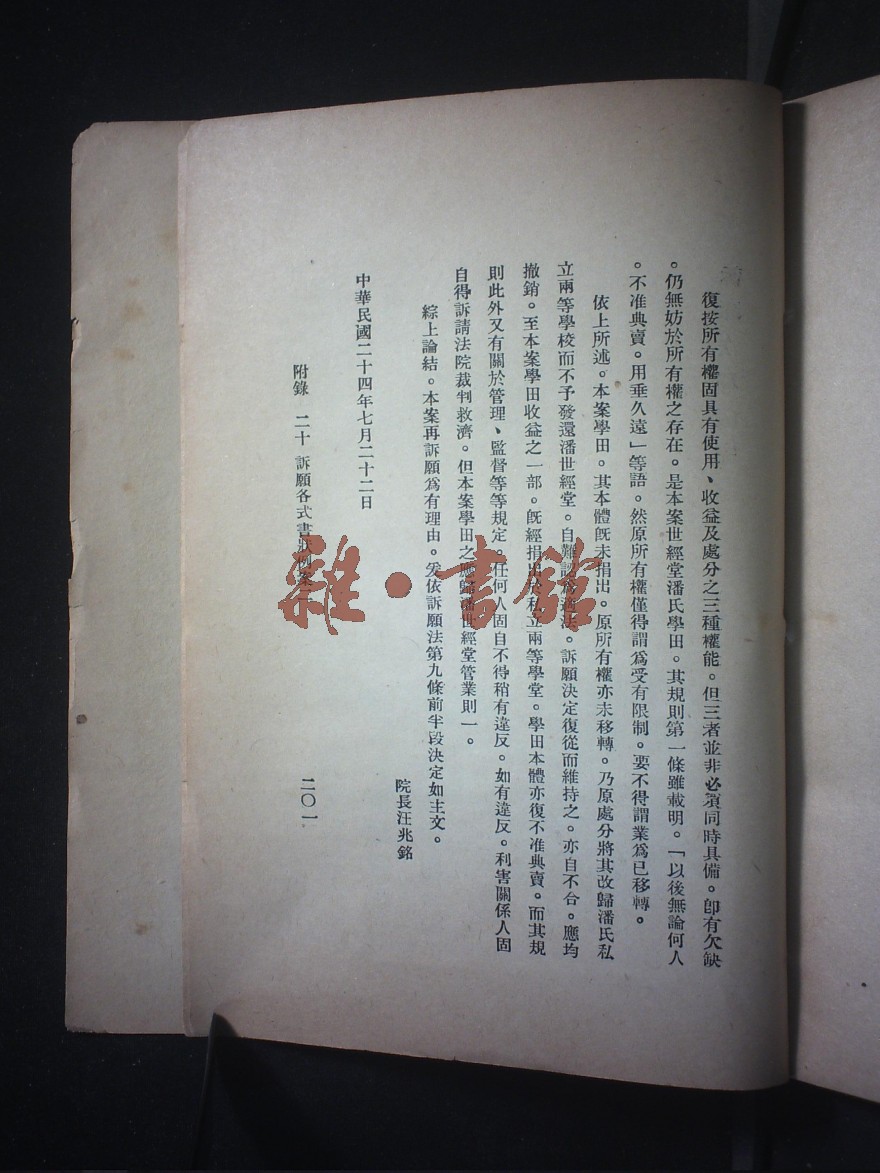 復按所有權固具有使用、收益及處分之三種權能。但三者並非必須同時具備。卽有欠缺
。仍無妨於所有權之存在。是本案世經堂潘氏學田。其規則第一條雖載明。「以後無論何人
。不准典賣。用垂久遠」等語。然原所有權僅得謂爲受有限制。要不得謂業爲已移轉。
依上所述。本案學田。其本體旣未捐出。原所有權亦未移轉。乃原處分將其改歸潘氏私
立兩等學校而不予發還潘世經堂。自難認爲適法。訴願決定復從而維持之。亦自不合。應均
撤銷。至本案學田收益之一部。旣經捐出於私立兩等學堂。學田本體亦復不准典賣。而其規
則此外又有關於管理、監督等等規定。任何人固自不得稍有違反。如有違反。利害關係人固
自得訴請法院裁判救濟。但本案學田之應歸潘世經堂管業則一。
綜上論結。本案再訴願爲有理由。爰依訴願法第九條前半段決定如主文。
院長汪兆銘
中華民國二十四年七月二十二日
附錄 二十 訴願各式書狀例案
二〇一
雜·書館